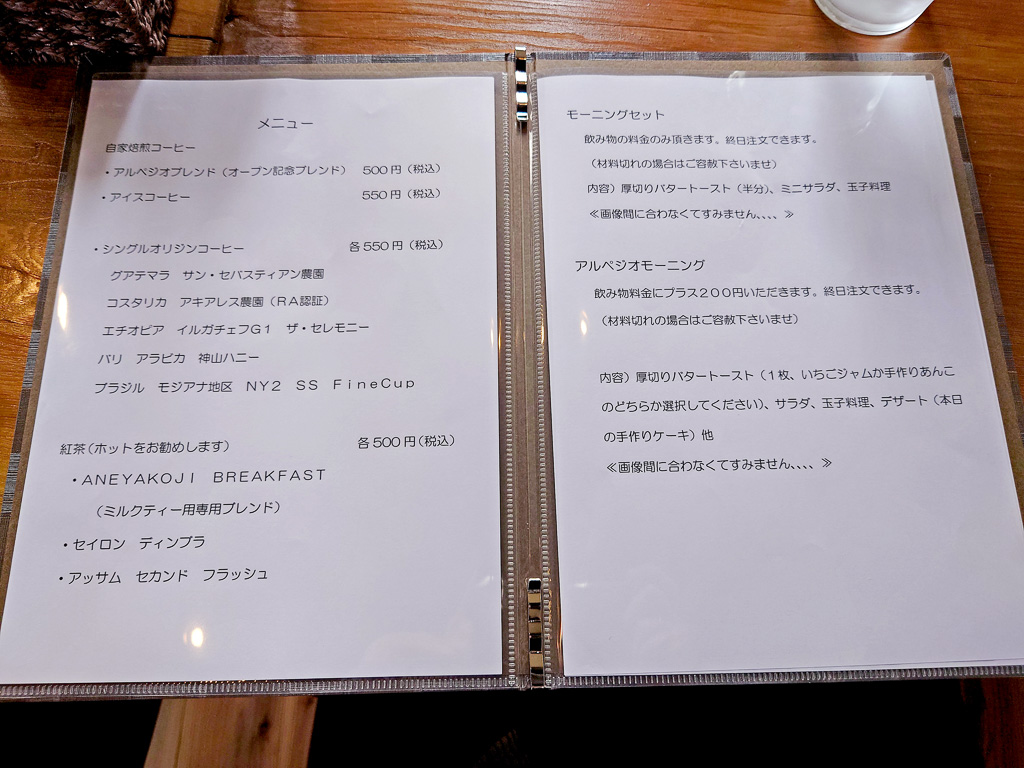 メニュー
自家焙煎コーヒー
・アルペジオブレンド（オープン記念ブレンド） 500円（税込）
・アイスコーヒー 550円（税込）
・シングルオリジンコーヒー 各550円（税込）
グアテマラ サン・セバスティアン農園
コスタリカ アキアレス農園（ＲＡ認証）
エチオピア イルガチェフＧ１ ザ・セレモニー
バリ アラビカ 神山ハニー
ブラジル モジアナ地区 ＮＹ２ ＳＳ ＦｉｎｅＣｕｐ
紅茶（ホットをお勧めします） 各500円（税込）
・ＡＮＥＹＡＫＯＪＩ ＢＲＥＡＫＦＡＳＴ
（ミルクティー用専用ブレンド）
・セイロン ディンブラ
・アッサム セカンド フラッシュ
モーニングセット
飲み物の料金のみ頂きます。終日注文できます。
（材料切れの場合はご容赦下さいませ）
内容）厚切りバタートースト（半分）、ミニサラダ、玉子料理
≪画像間に合わなくてすみません、、、、≫
アルペジオモーニング
飲み物料金にプラス２００円いただきます。終日注文できます。
（材料切れの場合はご容赦下さいませ）
内容）厚切りバタートースト（１枚、いちごジャムか手作りあんこ
のどちらか選択してください）、サラダ、玉子料理、デザート（本日
の手作りケーキ）他
≪画像間に合わなくてすみません、、、、≫